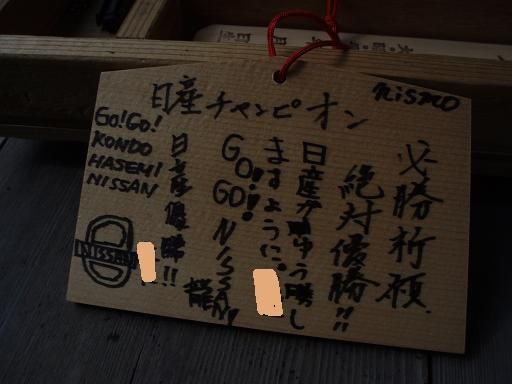 nismo
日産チャンピオン
必勝祈願
絶対優勝!!
日産がゆう勝し
ますように。
GO!! GO!! NISSAN!!
日産優勝!!
GO!GO!
KONDO
HASEMI
NISSAN
NISSAN